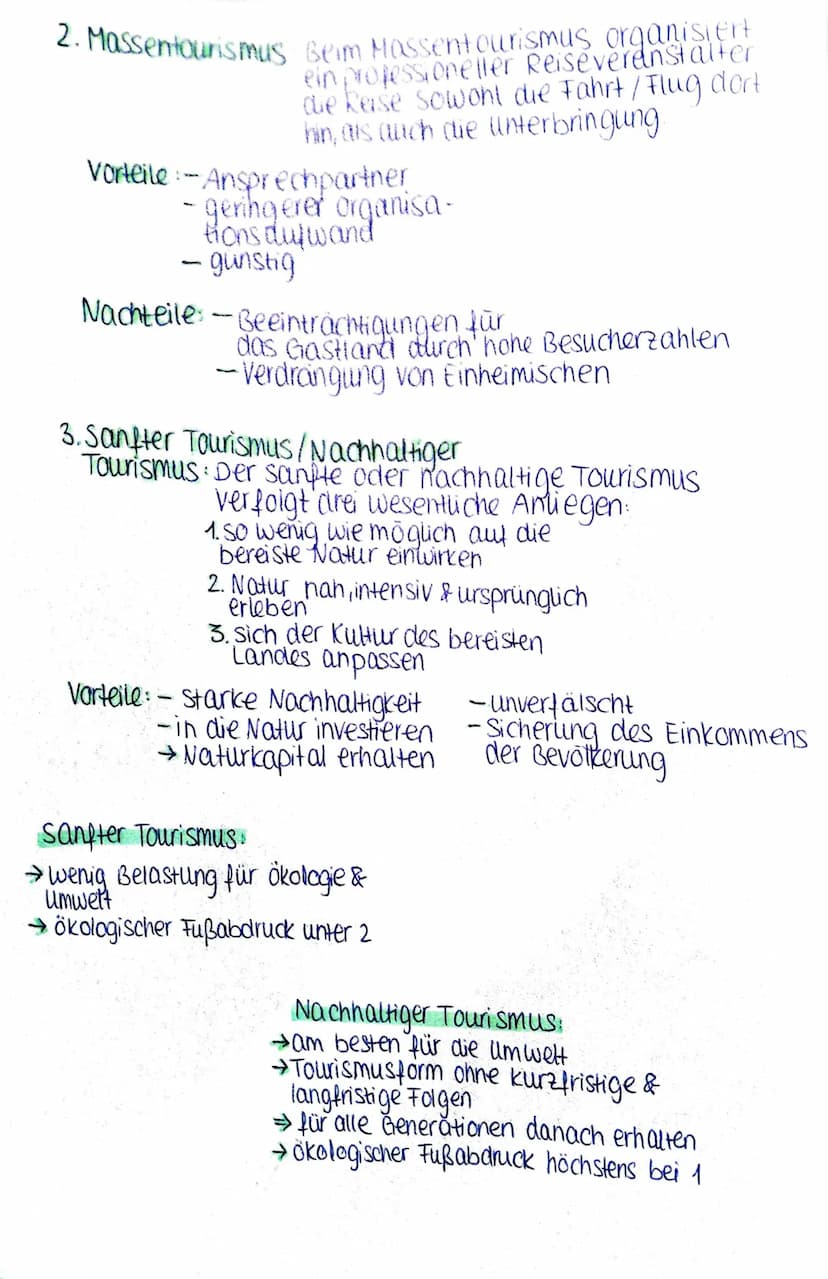 2. Massentourismus Beim Massentourismus organisiert
ein professioneller Reiseveranstalter
die Reise sowohl die Fahrt/Flug dort
hin, als auch die Unterbringung
Vorteile: - Ansprechpartner
- geringerer Organisa-
tionsaufwand
- günstig
Nachteile: - Beeinträchtigungen für
das Gastland durch hohe Besucherzahlen
- Verdrängung von Einheimischen
3. Sanfter Tourismus/Nachhaltiger
Tourismus: Der sanfte oder nachhaltige Tourismus
verfolgt drei wesentliche Anliegen:
1. so wenig wie möglich auf die
bereiste Natur einwirken
2. Natur nah, intensiv & ursprünglich
erleben
3. sich der Kultur des bereisten
Landes anpassen
Vorteile: - starke Nachhaltigkeit
- in die Natur investieren
→ Naturkapital erhalten
- unverfälscht
- Sicherung des Einkommens
der Bevölkerung
Sanfter Tourismus:
→ wenig Belastung für Ökologie &
Umwelt
→ ökologischer Fußabdruck unter 2
Nachhaltiger Tourismus:
→ am besten für die Umwelt
→ Tourismusform ohne kurzfristige &
langfristige Folgen
⇒ für alle Generationen danach erhalten
→ ökologischer Fußabdruck höchstens bei 1